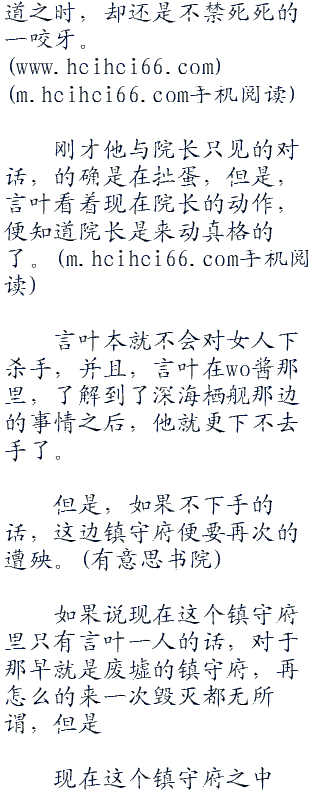 道之时，却还是不禁死死的
一咬牙。
(www.hcihci66.com)
(m.hcihci66.com手机阅读)
刚才他与院长只见的对
话，的确是在扯蛋，但是，
言叶看着现在院长的动作，
便知道院长是来动真格的
了。(m.hcihci66.com手机阅
读)
言叶本就不会对女人下
杀手，并且，言叶在wo酱那
里，了解到了深海栖舰那边
的事情之后，他就更下不去
手了。
但是，如果不下手的
话，这边镇守府便要再次的
遭殃。(有意思书院)
如果说现在这个镇守府
里只有言叶一人的话，对于
那早就是废墟的镇守府，再
怎么的来一次毁灭都无所
谓，但是
现在这个镇守府之中